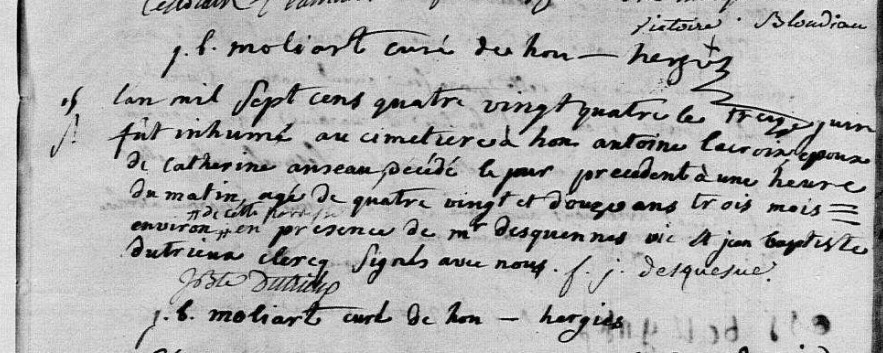 victoire Bloudiau
j. b. moliart curé de hon — hergies
lan mil sept cens quatre vingt quatre le treize juin
fût inhumé au cimetiere d hon antoine lacroix epoux
de catherine anseau, décédé le jour precedent à une heure
du matin, agé de quatre vingt et douze ans trois mois =
de cette paroisse
environ, en présence de mr desquennes vic et jean baptiste
dutrieux clercq signés avec nous. f. j. desquesne.
JBte Dutrieux
j. b. moliart curé de hon — hergies